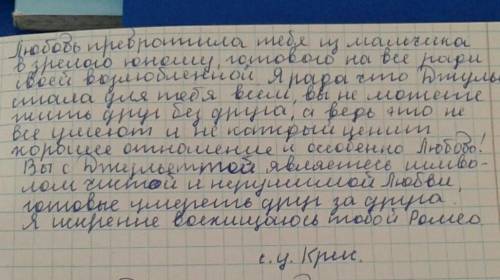 Любовь превратила тебя из мальчика
в зрелого юношу, готового на всё ради
своей возлюбленной. Я рада что Джуль
стала для тебя всем, вы не можете
жить друг без друга, а ведь это не
все умеют и не каждый ценит
хорошее отношение и особенно Любовь!
Вы с Джульеттой являетесь симво-
лом чистой и нерушимой Любви,
готовые умереть друг за друга.
Я искренне восхищаюсь тобой Ромео.
с. у. Крис.